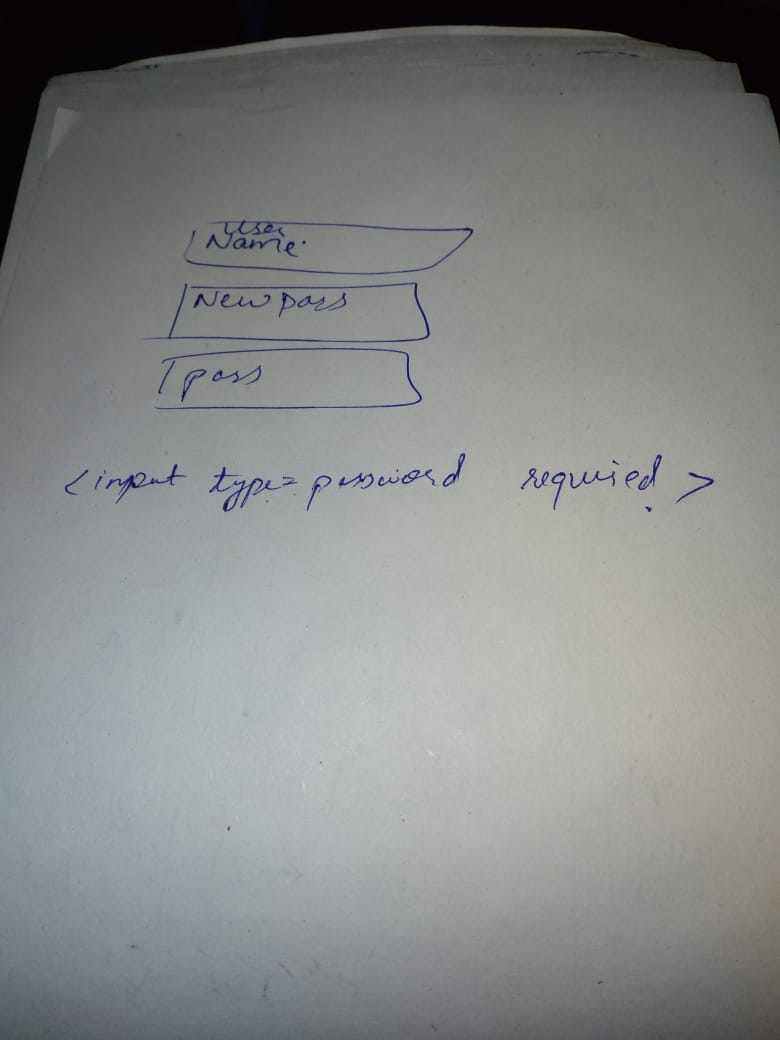 User
Name
New pass
pass
<input type=password required>